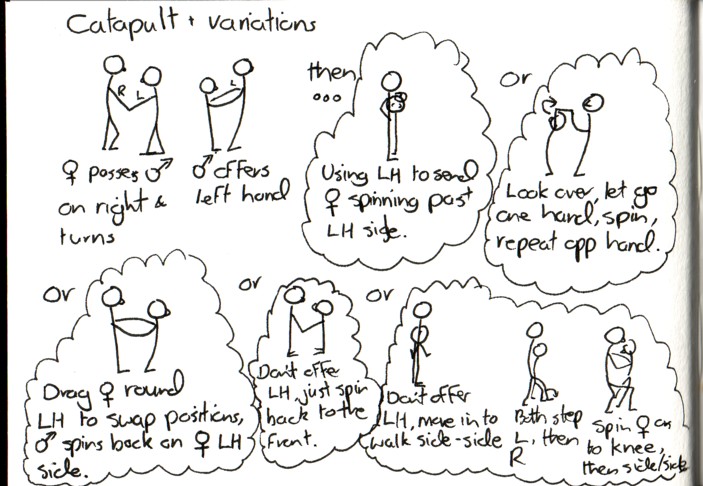 Catapult + variations
R L
♀ passes ♂
on right &
turns
L
♂ offers
left hand
then
...
Using LH to send
♀ spinning past
LH side.
or
Look over, let go
one hand, spin,
repeat opp hand.
or
Drag ♀ round
LH to swap positions,
♂ spins back on ♀ LH
side.
or
Don't offe
LH, just spin
back to the
front.
or
Don't offer
LH, move in to
walk side-side
Both step
L, then
R
Spin ♀ on
to knee,
then side/side